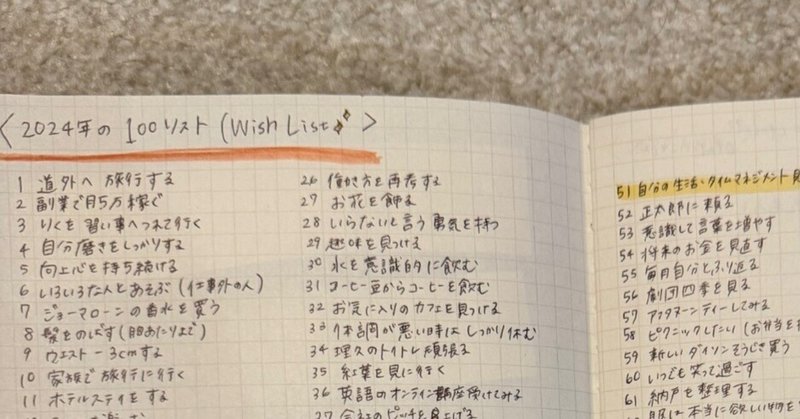 <2024年の100リスト(Wish List>
1 道外へ旅行する
2 副業で月5万稼ぐ
3 りくを習い事へつれて行く
4 自分磨きをしっかりする
5 向上心を持ち続ける
6 いろいろな人とあそぶ(仕事外の人)
7 ジョーマローンの香水を買う
8 髪をのばす(胸あたりまで)
9 ウエスト-3cmする
10 家族で旅行に行く
11 ホテルステイをする
26 働き方を再考する
27 お花を飾る
28 いらないと言う勇気を持つ
29 趣味を見つける
30 水を意識的に飲む
31 コーヒー豆からコーヒーを飲む
32 お気に入りのカフェを見つける
33 体調が悪い時はしっかり休む
34 理久のトイトレ頑張る
35 紅葉を見に行く
36 英語のオンライン講座受けてみる
37 会社のピッチを上げる
51 自分の生活・タイムマネジメント見
52 正太郎に頼る
53 意識して言葉を増やす
54 将来のお金を見直す
55 毎月自分とふり返る
56 劇団四季を見る
57 アフタヌーンティーしてみる
58 ピクニックしたい(お弁当を
59 新しいダイソンそうじき買う
60 いつでも笑って過ごす
61 納戸を整理する
服は本当に欲しい物を